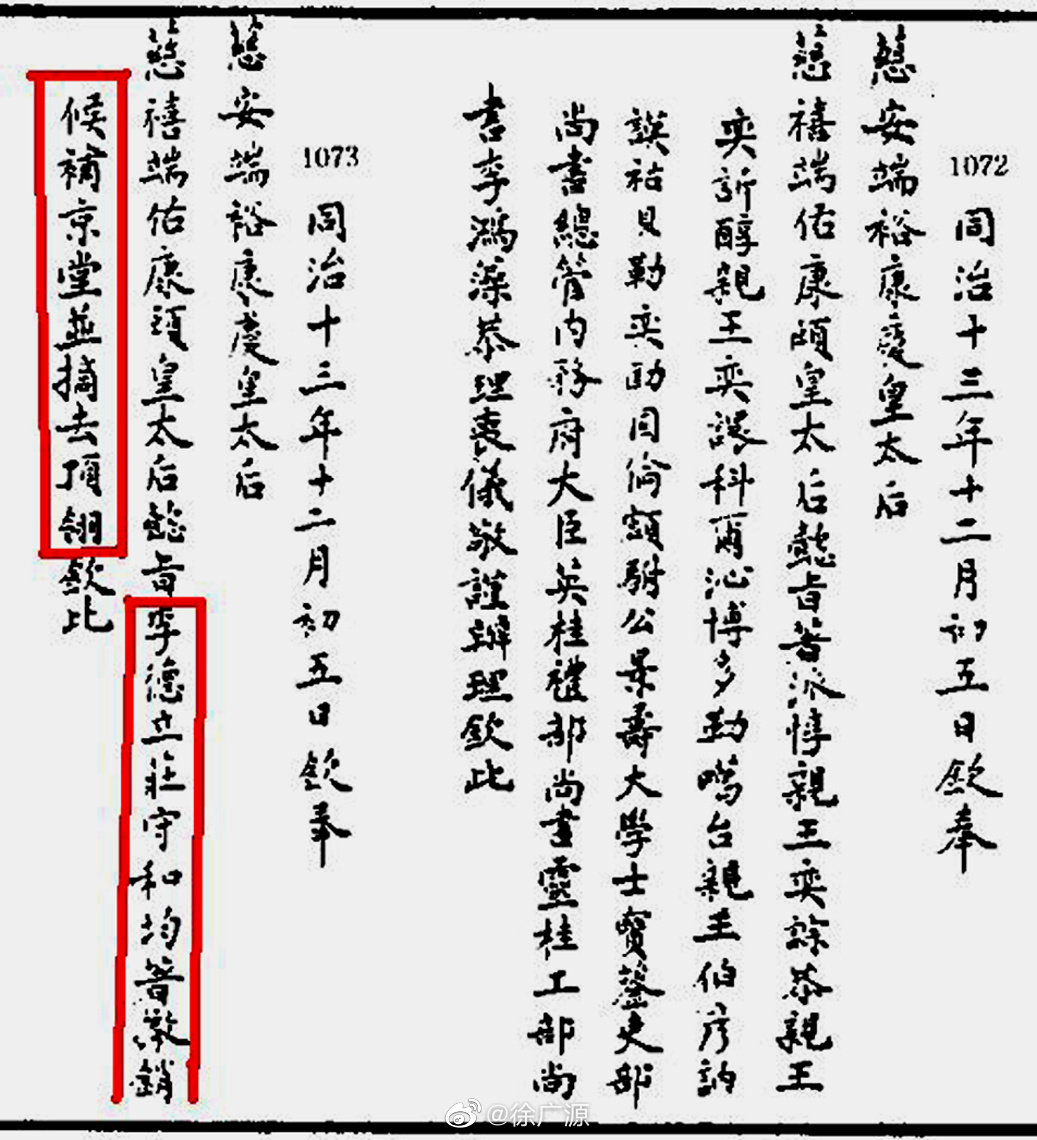 1072 同治十三年十二月初五日欽奉
慈安端裕康慶皇太后
慈禧端佑康頤皇太后懿旨著派惇親王奕誴恭親王
奕訢醇親王奕譞科爾沁博多勒噶台親王伯彥訥
謨祜貝勒奕劻固倫額駙公景壽大學士寶鋆吏部
尚書總管內務府大臣英桂禮部尚書靈桂工部尚
書李鴻藻恭理喪儀敬謹辦理欽此
1073 同治十三年十二月初五日欽奉
慈安端裕康慶皇太后
慈禧端佑康頤皇太后懿旨李德立莊守和均著撤銷
候補京堂並摘去頂翎欽此
@徐广源